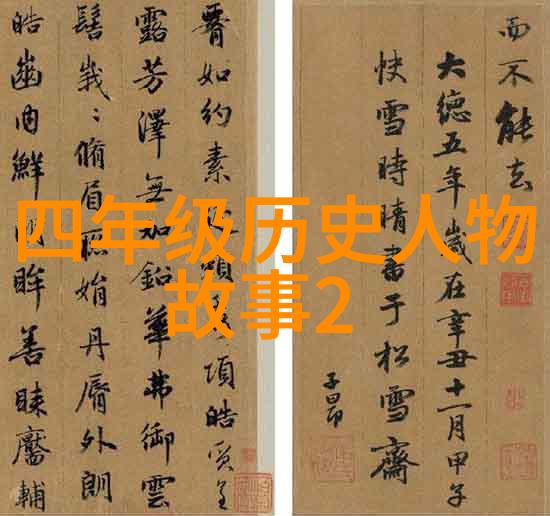 四年级历史人物
故事2
如約素項皓質呈
露芳澤無加鉛華弗御雲
髻峩〻脩眉聯娟丹脣外朗
皓齒内鮮明眸善睞靨輔
而不能去
大德五年歲在辛丑十一月甲子
快雪時晴書于松雪齋
子昂